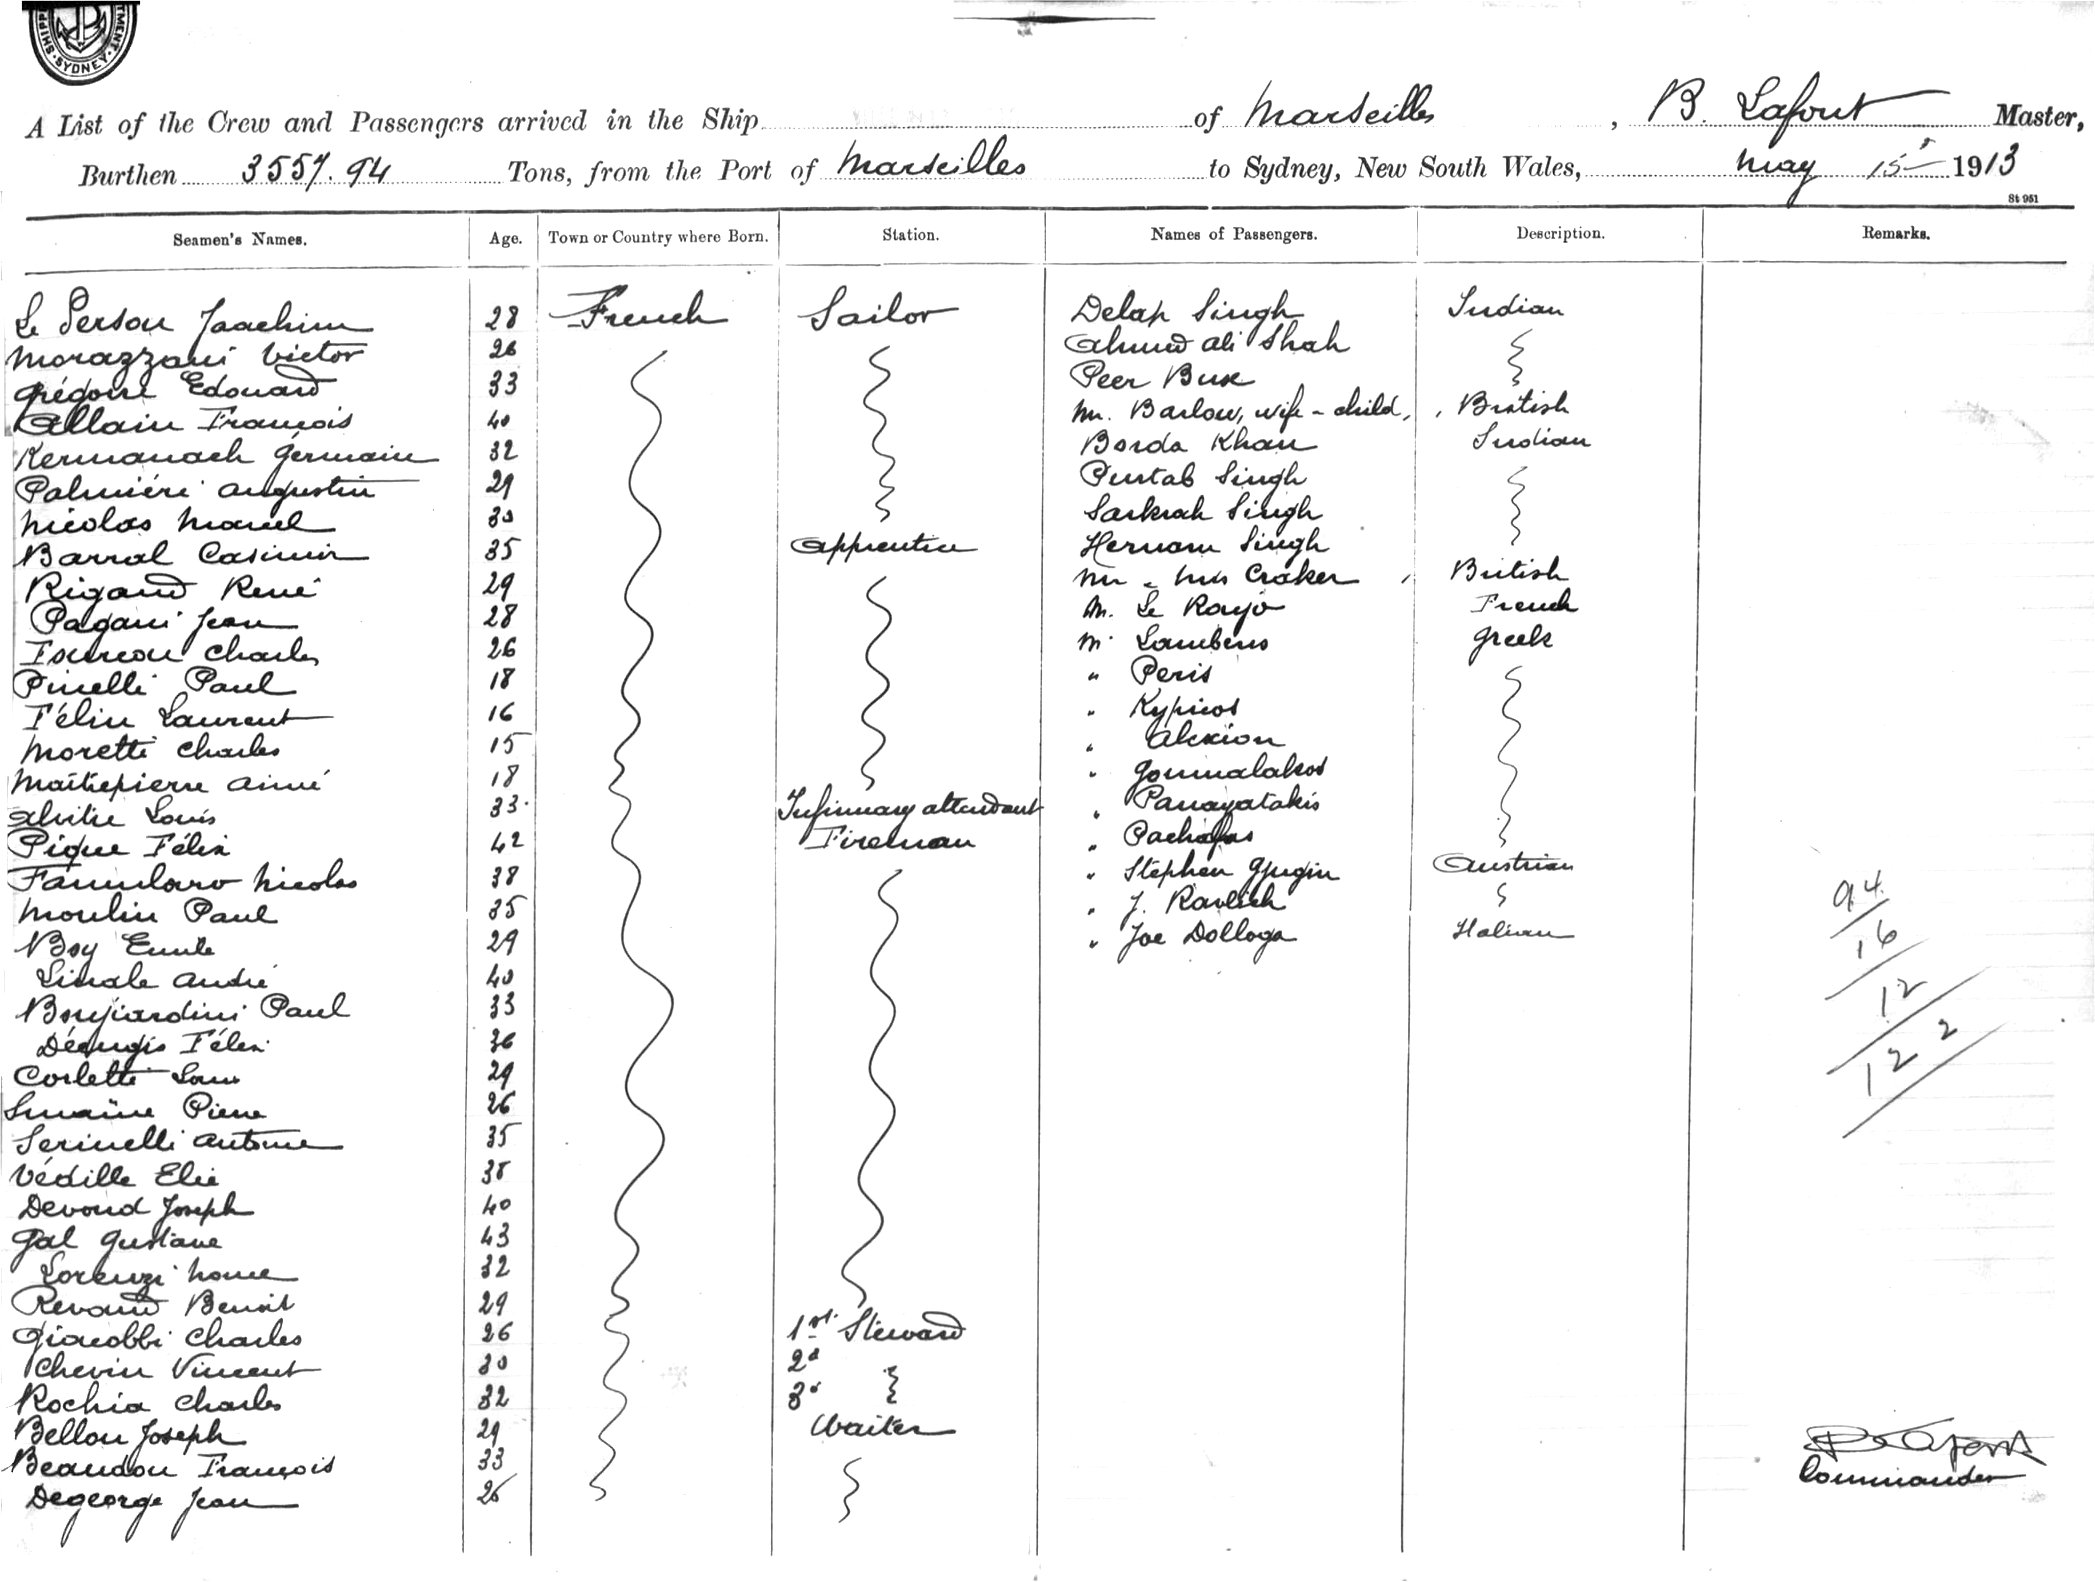 TMENT. SHIPP
SYDNEY
A List of the Crew and Passengers arrived in the Ship of Marseilles , B. Lafont Master,
Burthen 3557.94 Tons, from the Port of Marseilles to Sydney, New South Wales, May 15 1913
St 951
Seamen's Names. Age. Town or Country where Born. Station. Names of Passengers. Description. Remarks.
Le Person Joachim 28 French Sailor Delap Singh Indian
Morazzani Victor 26 Ahmed Ali Shah
Grégoire Edouard 33 Peer Bux
Allain François 40 Mr. Barlow, wife - child, British
Kermanach Germain 32 Borda Khan Indian
Palmiéri Augustin 29 Purtab Singh
Nicolas Marcel 30 Sarkrah Singh
Barral Casimir 35 Apprentice Hernam Singh
Rigaud René 29 Mr - Mrs Craker British
Pagani Jean 28 M. Le Rayo French
Charles 26 M. Lambens Greek
Pinelli Paul 18 " Peris
Félin Laurent 16 " Kypicos
Moretti Charles 15 " Alexion
Maitrepierre Aimé 18 " Goumalakos
Louis 33 Infirmary attendant " Panayatakis
Pique Félix 42 Fireman "
Famularo Nicolas 38 " Stephen Austrian
Moulin Paul 35 " J. Ravlich
Boy Emile 29 " Joe Dolloga Italian
94
16
12
122
André 40
Paul 33
Félix 36
Corletti 29
Pierre 26
Serinelli Antoine 35
Védille Elie 38
Devoud Joseph 40
Gal Gustave 43
Lorenzi 32
Revaud Benoit 29
Giacobbi Charles 26 1st Steward
Chevin Vincent 30 2d
Rochia Charles 32 3d
Bellon Joseph 29 Waiter
Beaudou François 33
Degeorge Jean 26
B Lafont
Commander